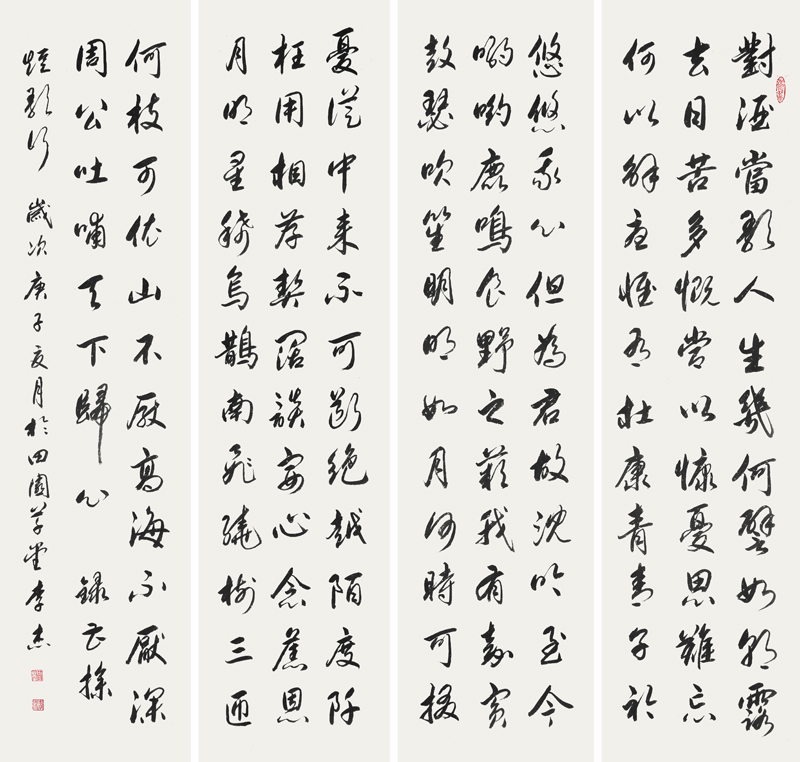 對酒當歌人生幾何譬如朝露
去日苦多慨當以慷憂思難忘
何以解憂惟有杜康青青子衿
悠悠我心但為君故沈吟至今
呦呦鹿鳴食野之蘋我有嘉賓
鼓瑟吹笙明明如月何時可掇
憂從中來不可斷絕越陌度阡
枉用相存契闊談宴心念舊恩
月明星稀烏鵲南飛繞樹三匝
何枝可依山不厭高海不厭深
周公吐哺天下歸心 錄曹操
短歌行 歲次庚子夏月於田園草堂李杰